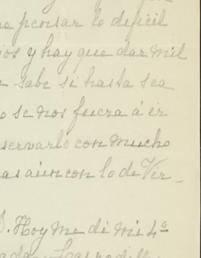 pensar lo dificil
y hay que dar mil
sabe si hasta sea
se nos fuera á ir
servarlo con mucho
as aún con lo de Ver-
Hoy me di mi 4º